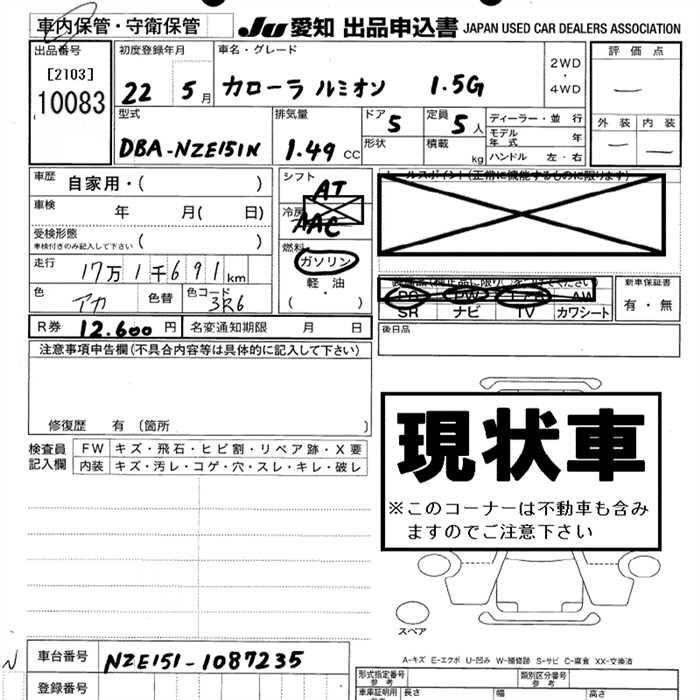 車内保管・守衛保管 JU 愛知 出品申込書 JAPAN USED CAR DEALERS ASSOCIATION
出品番号 初度登録年月 車名・グレード 2WD ・ 4WD 評価点
[2103] 10083 22 5月 カローラ ルミオン 1.5G —
型式 排気量 ドア 5 定員 5人 ディーラー・並行 外装 内装
DBA-NZE151N 1.49 CC 形状 積載 kg モデル年式 年 — —
ハンドル 左・右
車歴 自家用・( ) シフト AT
車検 年 月( 日) 冷房 AAC
受検形態 車検付きのみ記入して下さい ( ) 燃料 ガソリン
走行 17万1千691km 軽油 ・ ( )
色 アカ 色替 色コード 3R6
セールスポイント(正常に機能するものに限ります)
PS PW エアB AW
SR ナビ TV カワシート
新車保証書 有・無
R券 12.600円 名変通知期限 月 日 後日品
注意事項申告欄(不具合内容等は具体的に記入して下さい)
修復歴 有 (箇所 )
検査員記入欄 FW キズ・飛石・ヒビ割・リペア跡・X要
内装 キズ・汚レ・コゲ・穴・スレ・キレ・破レ
現状車
※このコーナーは不動車も含み
ますのでご注意下さい
スペア
A-キズ E-エクボ U-凹み W-補修跡 S-サビ C-腐食 XX-交換済
N 車台番号 NZE151-1087235
登録番号
形式指定番号 参考 類別区分番号 参考
車庫証明用 参考 長さ 幅 高さ